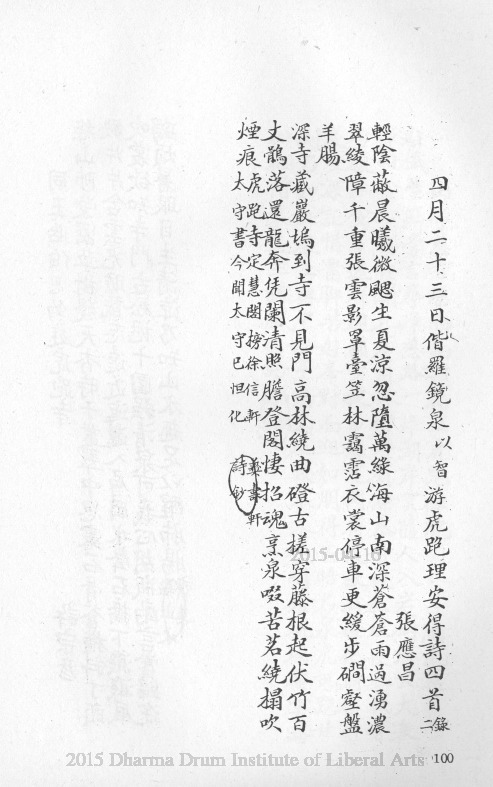 四月二十三日偕羅鏡泉以智游虎跑理安得詩四首錄二
張應昌
輕陰蔽晨曦微颸生夏涼忽墮萬綠海山南深蒼蒼雨過湧濃
翠綾障千重張雲影罩臺笠林靄霑衣裳停車更緩步磵壑盤
羊腸
深寺藏巖塢到寺不見門高林繞曲磴古搓穿藤根起伏竹百
丈鶻落還龍奔凭闌清照膽登閣悽招魂烹泉啜苦茗繞榻吹
煙痕
虎跑寺定慧閣榜徐信軒
太守書今聞太守已怛化
彝壽軒
詩鈔
2015-04-16
2015 Dharma Drum Institute of Liberal Arts
100